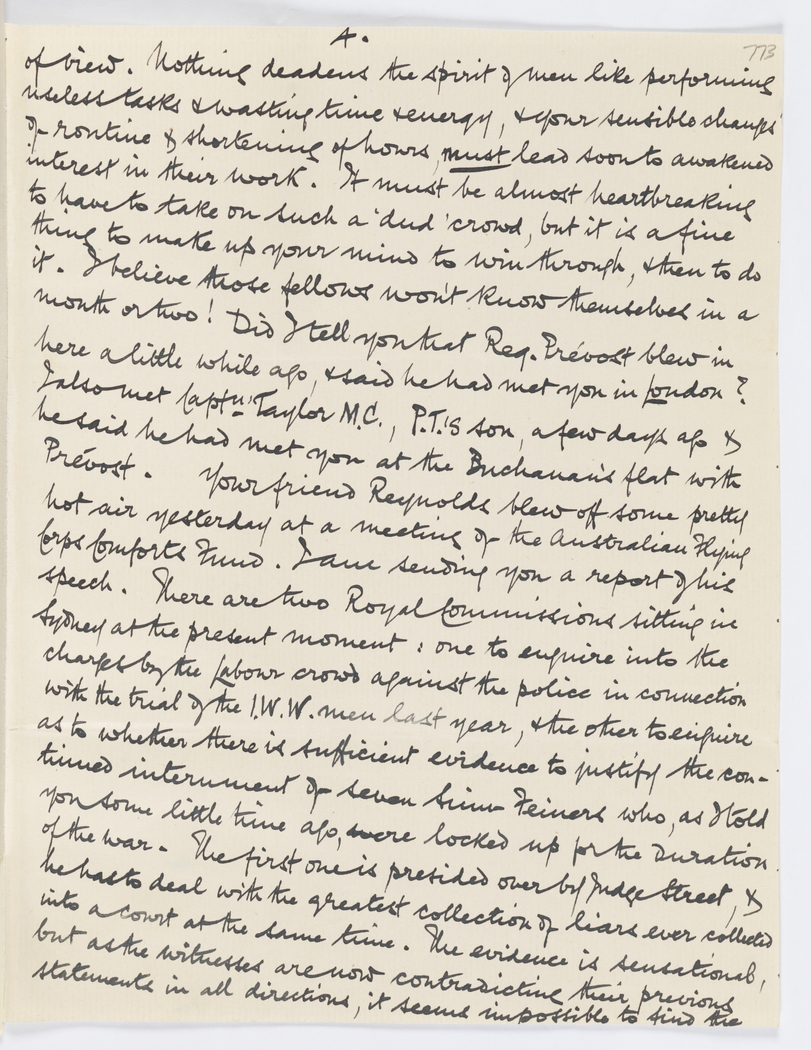 4.
773
of view. Nothing deadens the spirit of men like performing
useless tasks & wasting time & energy, & your sensible changes
of routine & shortening of hours, must lead soon to awakened
interest in their work. It must be almost heartbreaking
to have to take on such a 'dud' crowd, but it is a fine
thing to make up your mind to win through, & then to do
it. I believe those fellows won't know themselves in a
month or two! Did I tell you that Reg. Prévost blew in
here a little while ago, & said he had met you in London?
I also met Captn. Taylor M.C., P.T.'s son, a few days ago &
he said he had met you at the Buchanan's flat with
Prévost. Your friend Reynolds blew off some pretty
hot air yesterday at a meeting of the Australian Flying
Corps Comforts Fund. I am sending you a report of his
speech. There are two Royal Commissions sitting in
Sydney at the present moment: one to enquire into the
charges by the Labour crowd against the police in connection
with the trial of the I.W.W. men last year, & the other to enquire
as to whether there is sufficient evidence to justify the con-
tinued internment of seven Sinn Feiners who, as I told
you some little time ago, were locked up for the duration
of the war. The first one is presided over by Judge Street, &
he has to deal with the greatest collection of liars ever collected
into a court at the same time. The evidence is sensational,
but as the witnesses are now contradicting their previous
statements in all directions, it seems impossible to find the